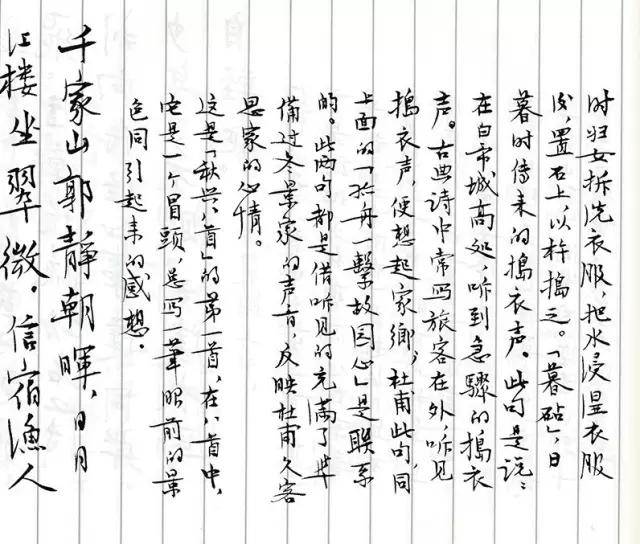 时妇女拆洗衣服，把水浸湿衣服
后，置石上，以杵搗之。「暮砧」，日
暮时传来的搗衣声。此句是说：
在白帝城高处，听到急骤的搗衣
声。古典诗中常写旅客在外，听见
搗衣声，便想起家鄉，杜甫此句，同
上面的「孤舟一繫故园心」是联系
的。此两句都是借听见的充满了准
备过冬景象的声音，反映杜甫久客
思家的心情。
这是「秋兴八首」的第一首，在八首中，
它是一个冒头，总写一笔眼前的景
色同引起来的感想。
千家山郭靜朝暉，日日
江楼坐翠微。信宿渔人